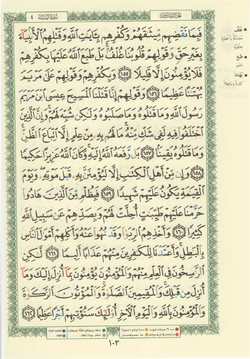 فَبِمَا نَقْضِهِم مِّيثَٰقَهُمْ وَكُفْرِهِم بِـَٔايَٰتِ ٱللَّهِ وَقَتْلِهِمُ ٱلْأَنۢبِيَآءَ
بِغَيْرِ حَقٍّ وَقَوْلِهِمْ قُلُوبُنَا غُلْفٌۢ بَلْ طَبَعَ ٱللَّهُ عَلَيْهَا بِكُفْرِهِمْ
فَلَا يُؤْمِنُونَ إِلَّا قَلِيلًا ١٥٥ وَبِكُفْرِهِمْ وَقَوْلِهِمْ عَلَىٰ مَرْيَمَ
بُهْتَٰنًا عَظِيمًا ١٥٦ وَقَوْلِهِمْ إِنَّا قَتَلْنَا ٱلْمَسِيحَ عِيسَى ٱبْنَ مَرْيَمَ
رَسُولَ ٱللَّهِ وَمَا قَتَلُوهُ وَمَا صَلَبُوهُ وَلَٰكِن شُبِّهَ لَهُمْ وَإِنَّ ٱلَّذِينَ
ٱخْتَلَفُوا۟ فِيهِ لَفِى شَكٍّ مِّنْهُ مَا لَهُم بِهِۦ مِنْ عِلْمٍ إِلَّا ٱتِّبَاعَ ٱلظَّنِّ
وَمَا قَتَلُوهُ يَقِينًۢا ١٥٧ بَل رَّفَعَهُ ٱللَّهُ إِلَيْهِ وَكَانَ ٱللَّهُ عَزِيزًا حَكِيمًا
١٥٨ وَإِن مِّنْ أَهْلِ ٱلْكِتَٰبِ إِلَّا لَيُؤْمِنَنَّ بِهِۦ قَبْلَ مَوْتِهِۦ وَيَوْمَ
ٱلْقِيَٰمَةِ يَكُونُ عَلَيْهِمْ شَهِيدًا ١٥٩ فَبِظُلْمٍ مِّنَ ٱلَّذِينَ هَادُوا۟
حَرَّمْنَا عَلَيْهِمْ طَيِّبَٰتٍ أُحِلَّتْ لَهُمْ وَبِصَدِّهِمْ عَن سَبِيلِ ٱللَّهِ
كَثِيرًا ١٦٠ وَأَخْذِهِمُ ٱلرِّبَوٰا۟ وَقَدْ نُهُوا۟ عَنْهُ وَأَكْلِهِمْ أَمْوَٰلَ ٱلنَّاسِ
بِٱلْبَٰطِلِ وَأَعْتَدْنَا لِلْكَٰفِرِينَ مِنْهُمْ عَذَابًا أَلِيمًا ١٦١ لَّٰكِنِ
ٱلرَّٰسِخُونَ فِى ٱلْعِلْمِ مِنْهُمْ وَٱلْمُؤْمِنُونَ يُؤْمِنُونَ بِمَآ أُنزِلَ إِلَيْكَ وَمَآ
أُنزِلَ مِن قَبْلِكَ وَٱلْمُقِيمِينَ ٱلصَّلَوٰةَ وَٱلْمُؤْتُونَ ٱلزَّكَوٰةَ
وَٱلْمُؤْمِنُونَ بِٱللَّهِ وَٱلْيَوْمِ ٱلْـَٔاخِرِ أُو۟لَٰٓئِكَ سَنُؤْتِيهِمْ أَجْرًا عَظِيمًا ١٦٢
١٠٣